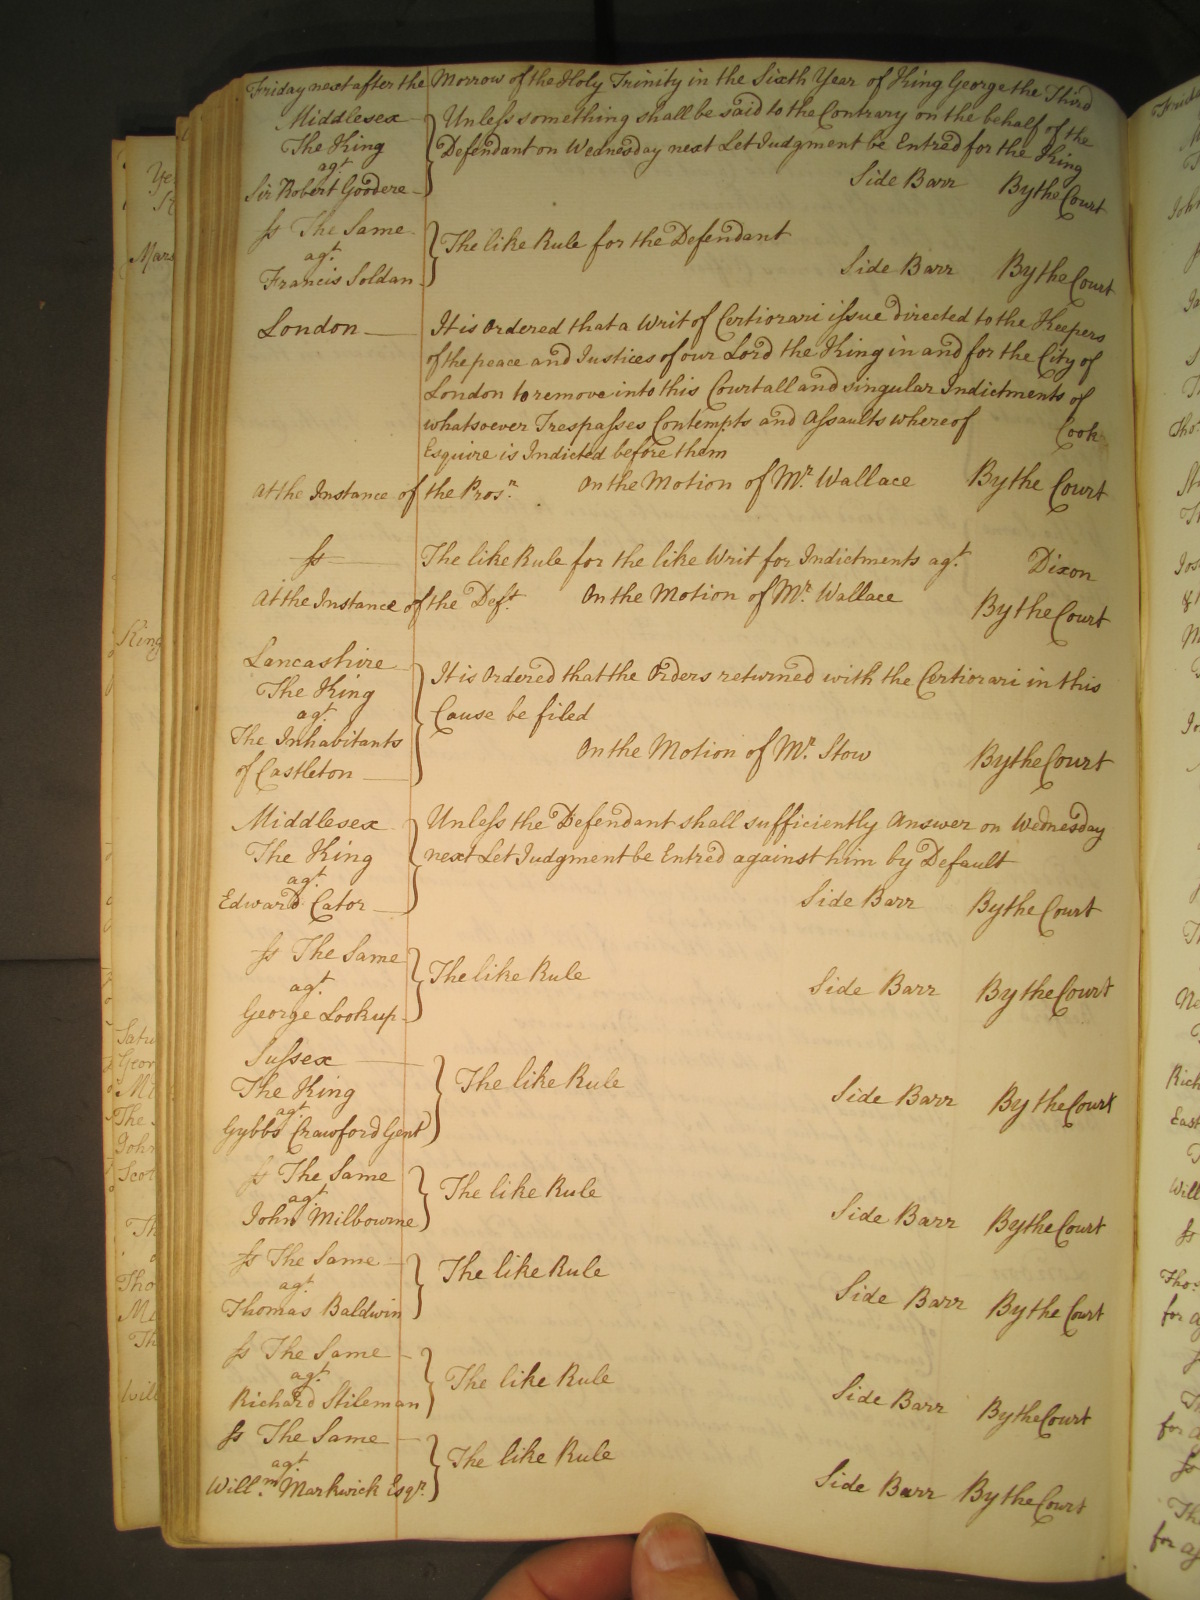 Friday next after the Morrow of the Holy Trinity in the Sixth Year of King George the Third
Middlesex
The King
agt.
Sir Robert Goodere
Unless something shall be said to the Contrary on the behalf of the
Defendant on Wednesday next Let Judgment be Entred for the King
Side Barr By the Court
Ss The Same
agt.
Francis Soldan
The like Rule for the Defendant
Side Barr By the Court
London
It is Ordered that a Writ of Certiorari issue directed to the Keepers
of the peace and Justices of our Lord the King in and for the City of
London to remove into this Court all and singular Indictments of
whatsoever Trespasses Contempts and Assaults whereof Cook
Esquire is Indicted before them
At the Instance of the Prosr. On the Motion of Mr. Wallace By the Court
Ss
The like Rule for the like Writ for Indictments agt. Dixon
At the Instance of the Deft. On the Motion of Mr. Wallace By the Court
Lancashire
The King
agt.
The Inhabitants
of Castleton
It is Ordered that the Orders returned with the Certiorari in this
Cause be filed
On the Motion of Mr. Stow By the Court
Middlesex
The King
agt.
Edward Cator
Unless the Defendant shall sufficiently Answer on Wednesday
next Let Judgment be Entred against him by Default
Side Barr By the Court
Ss The Same
agt.
George Lookup
The like Rule
Side Barr By the Court
Sussex
The King
agt.
Gybbs Crawford Gent
The like Rule
Side Barr By the Court
Ss The Same
agt.
John Milbourne
The like Rule
Side Barr By the Court
Ss The Same
agt.
Thomas Baldwin
The like Rule
Side Barr By the Court
Ss The Same
agt.
Richard Stileman
The like Rule
Side Barr By the Court
Ss The Same
agt.
Willm. Markwick Esqr.
The like Rule
Side Barr By the Court